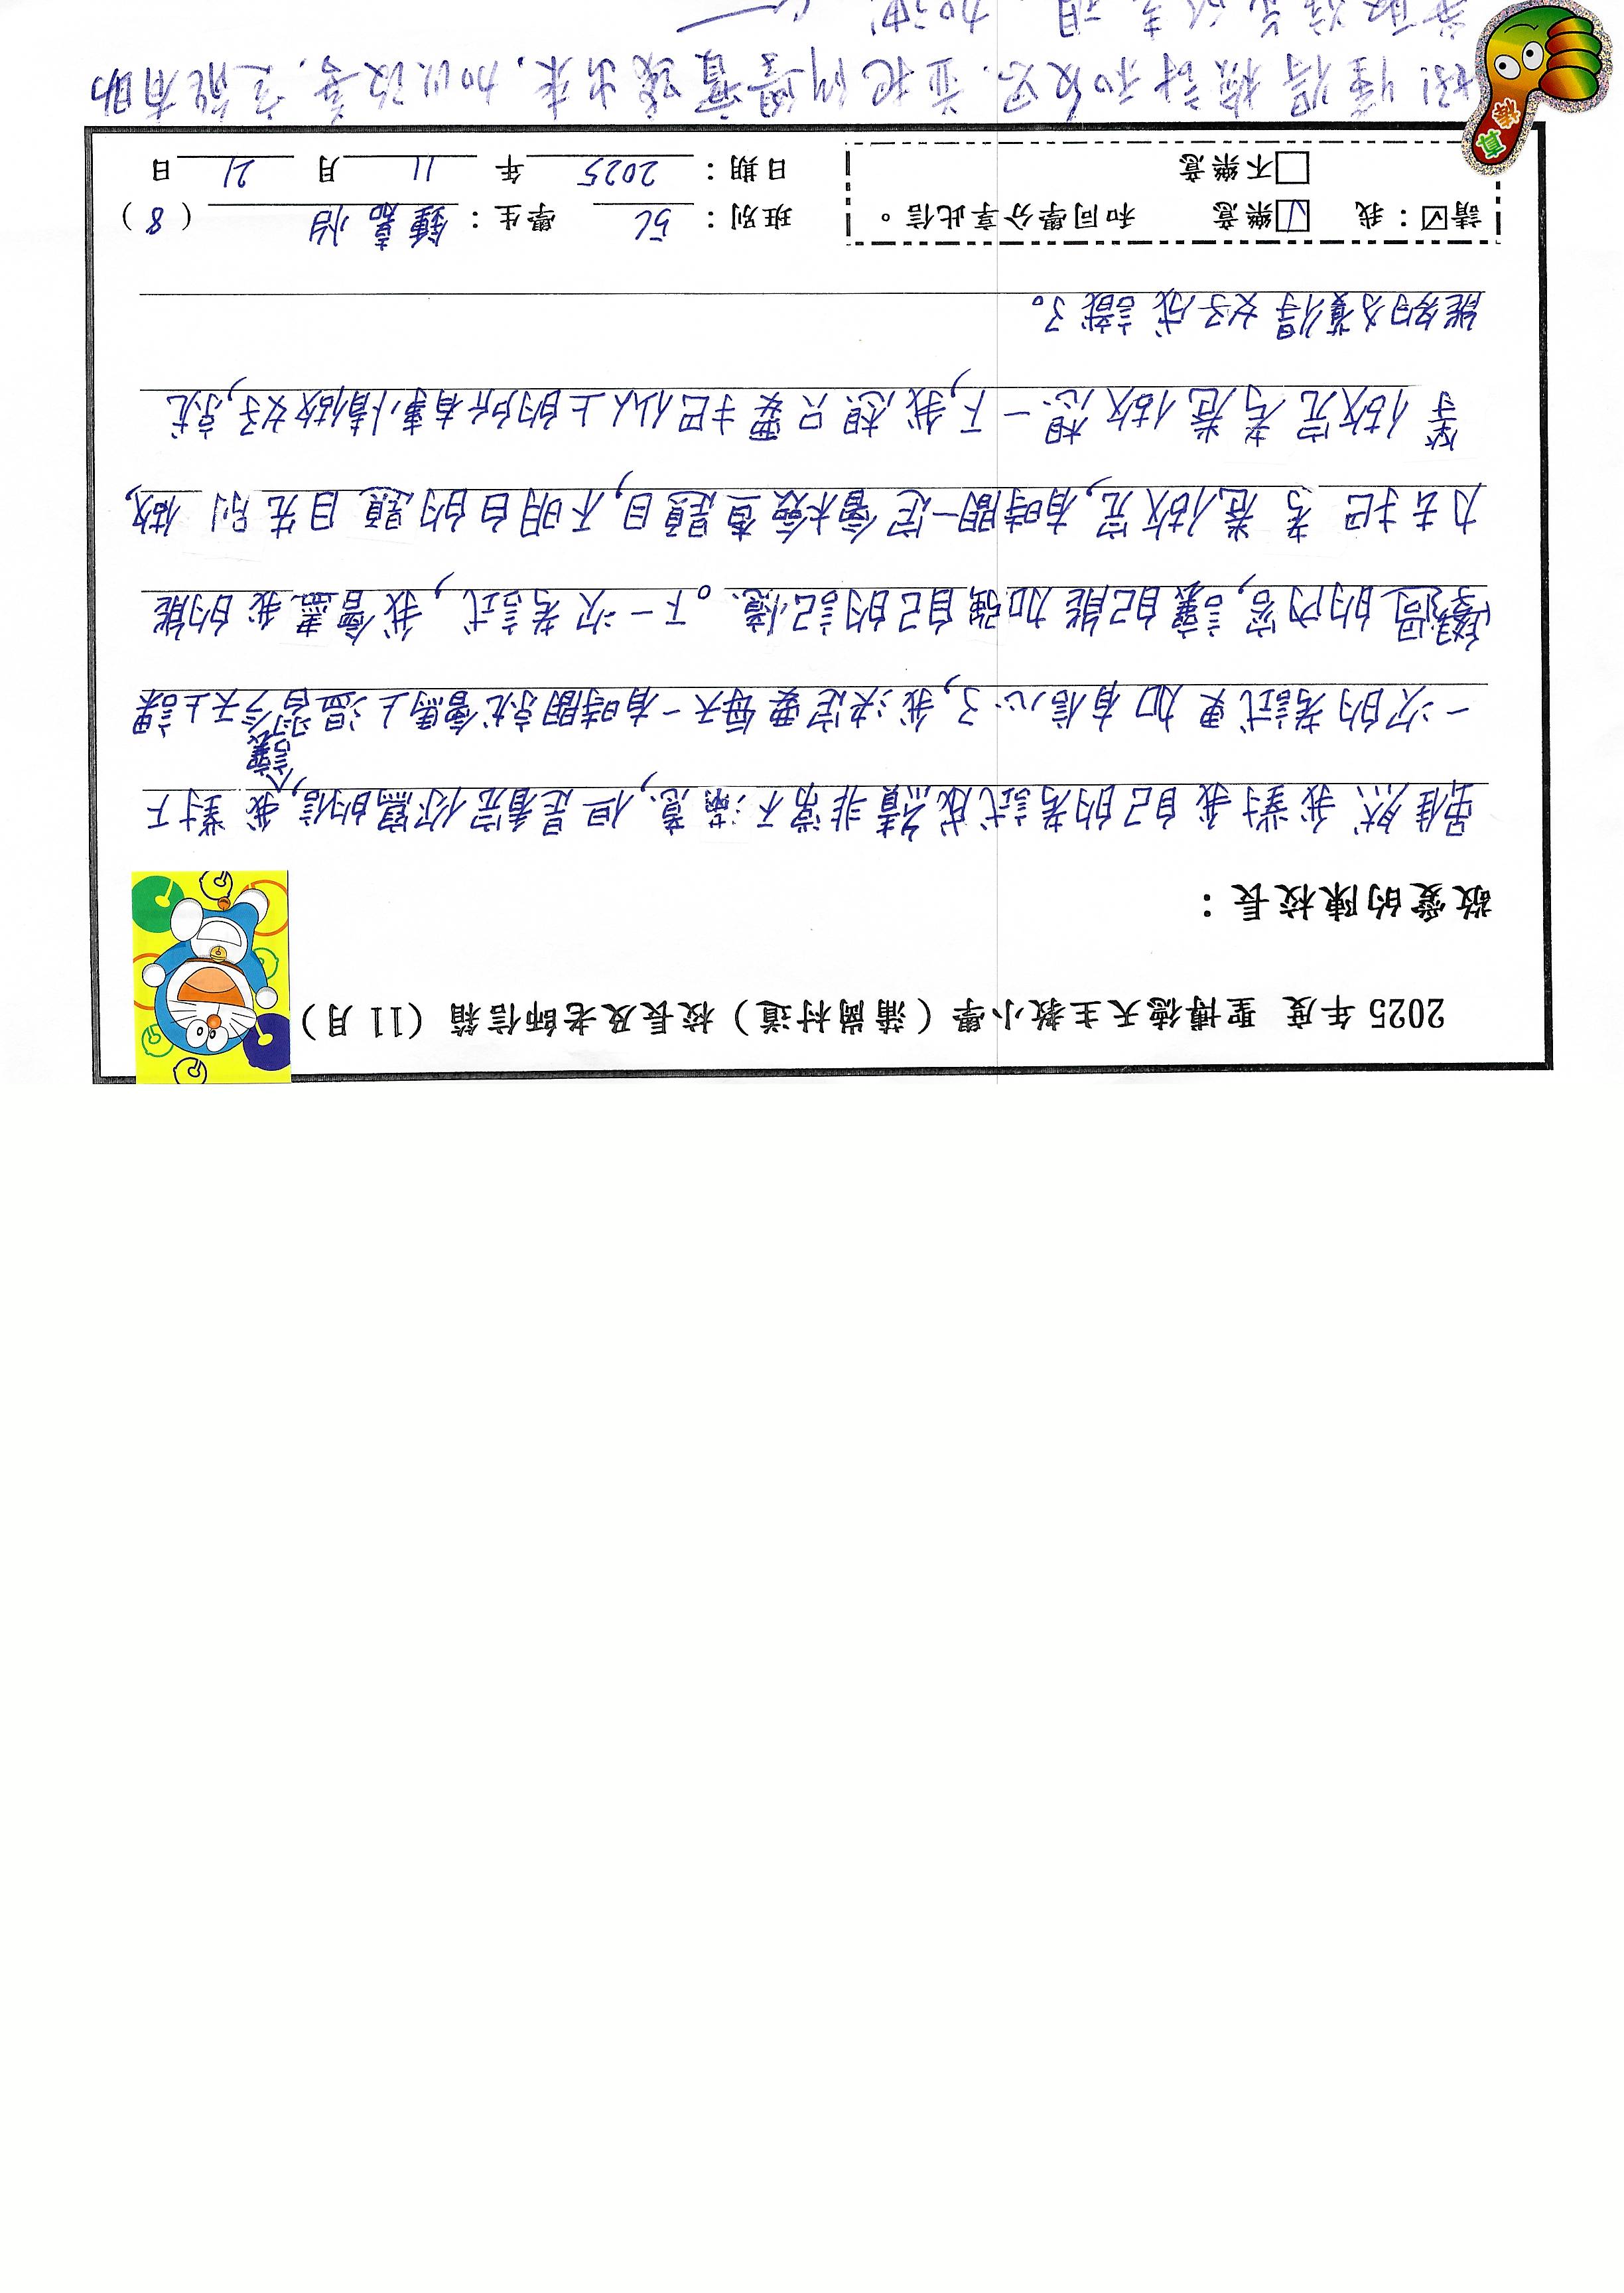 2025 年度 聖博德天主教小學（蒲崗村道）校長及老師信箱（11 月）
敬愛的陳校長：
雖然我對我自己的考試成績非常不滿意，但是看完你寫的信，我對下
讓
一次的考試更加有信心了，我決定要每一天有時間就會馬上溫習今天上課
學過的內容，讓自己能加強自己的記憶。下一次考試，我會盡我的能
力去把考卷做完，有時間一定會檢查題目，不明白的題目先別做，
等做完考卷做想一下，我想只要把以上的所有事情做好，就
能夠獲得好成績了。
請☑：我 ☑樂意 和同學分享此信。
□不樂意
班別：5C 學生：鍾嘉怡（8）
日期：2025 年 11 月 21 日
懂得檢討和反思，並把問題找出來，加以改善，定能有助
加油！
真棒